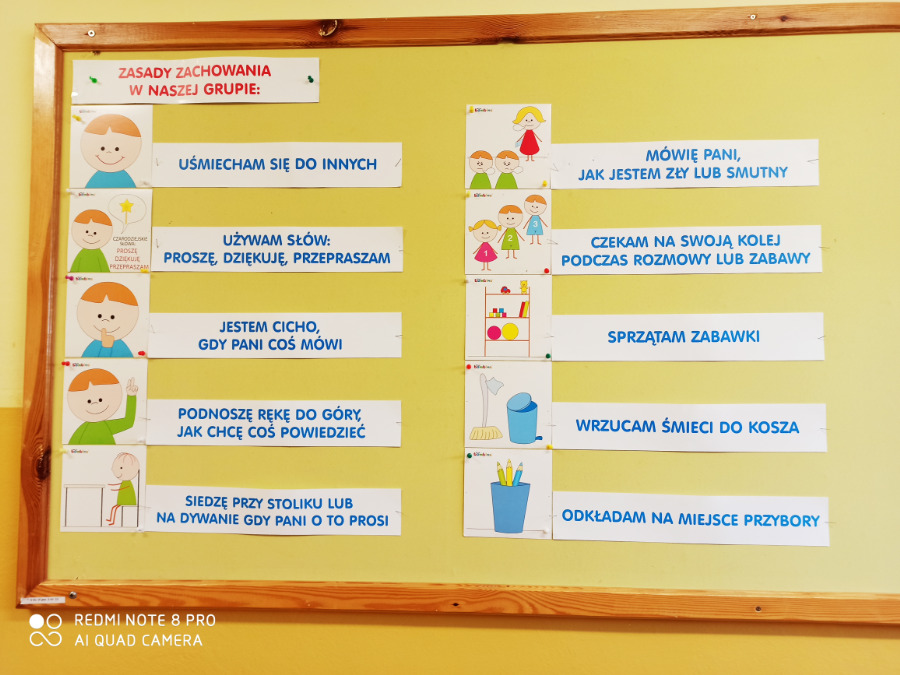 ZASADY ZACHOWANIA
W NASZEJ GRUPIE:
UŚMIECHAM SIĘ DO INNYCH
CZARODZIEJSKIE
SŁOWA:
PROSZĘ
DZIĘKUJĘ
PRZEPRASZAM
UŻYWAM SŁÓW:
PROSZĘ, DZIĘKUJĘ, PRZEPRASZAM
JESTEM CICHO,
GDY PANI COŚ MÓWI
PODNOSZĘ RĘKĘ DO GÓRY,
JAK CHCĘ COŚ POWIEDZIEĆ
SIEDZĘ PRZY STOLIKU LUB
NA DYWANIE GDY PANI O TO PROSI
MÓWIĘ PANI,
JAK JESTEM ZŁY LUB SMUTNY
1 2 3
CZEKAM NA SWOJĄ KOLEJ
PODCZAS ROZMOWY LUB ZABAWY
SPRZĄTAM ZABAWKI
WRZUCAM ŚMIECI DO KOSZA
ODKŁADAM NA MIEJSCE PRZYBORY
REDMI NOTE 8 PRO
AI QUAD CAMERA